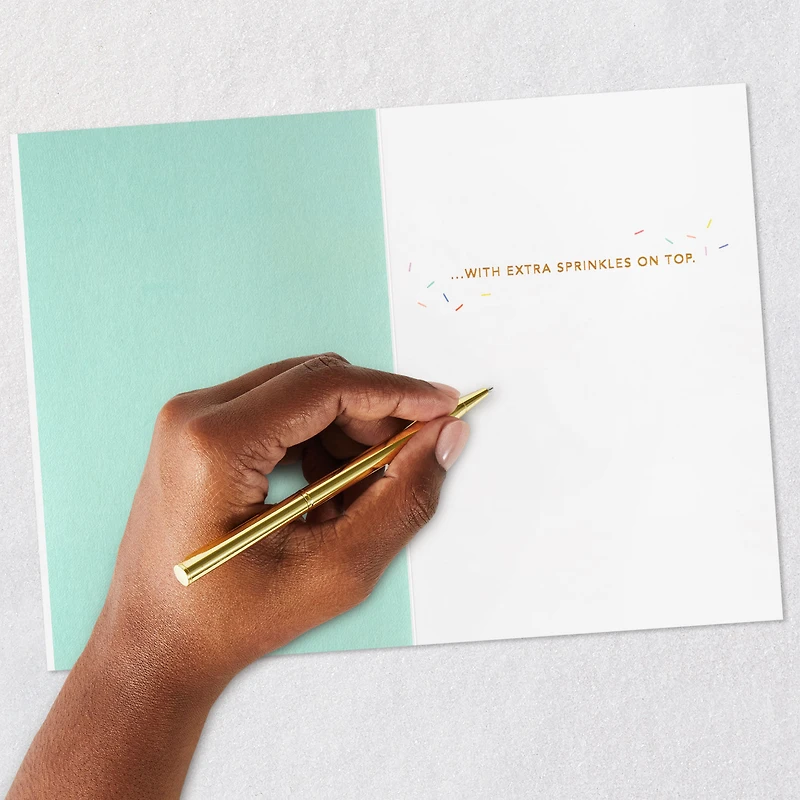 ...WITH EXTRA SPRINKLES ON TOP.